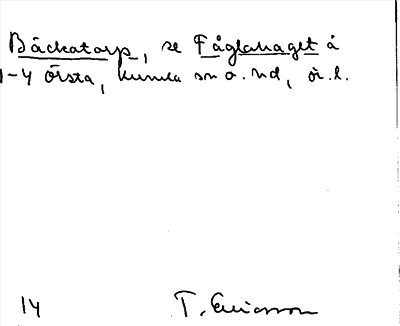 Bäckatorp, se Fåglahaget å
1-4 Örsta, Kumla sn o. hd, ör. l.
14 T. Ericsson